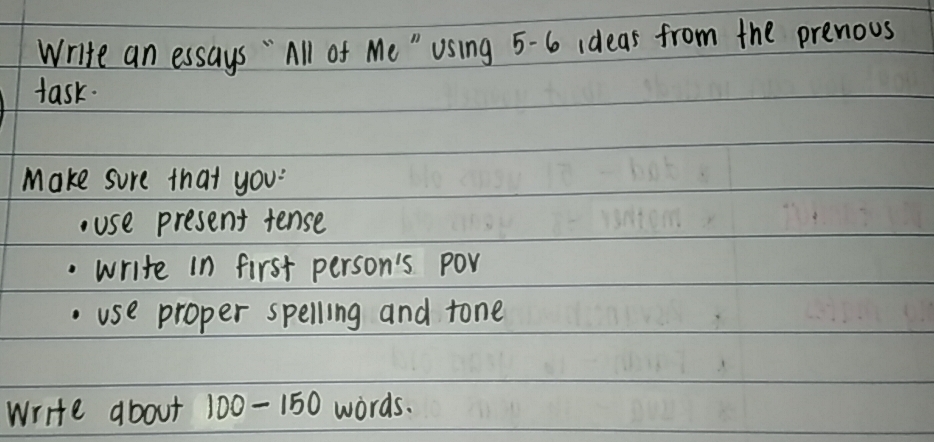 Write an essays "All of Me" using 5-6 ideas from the previous
task.
Make sure that you:
• use present tense
• write in first person's POV
• use proper spelling and tone
Write about 100 - 150 words.